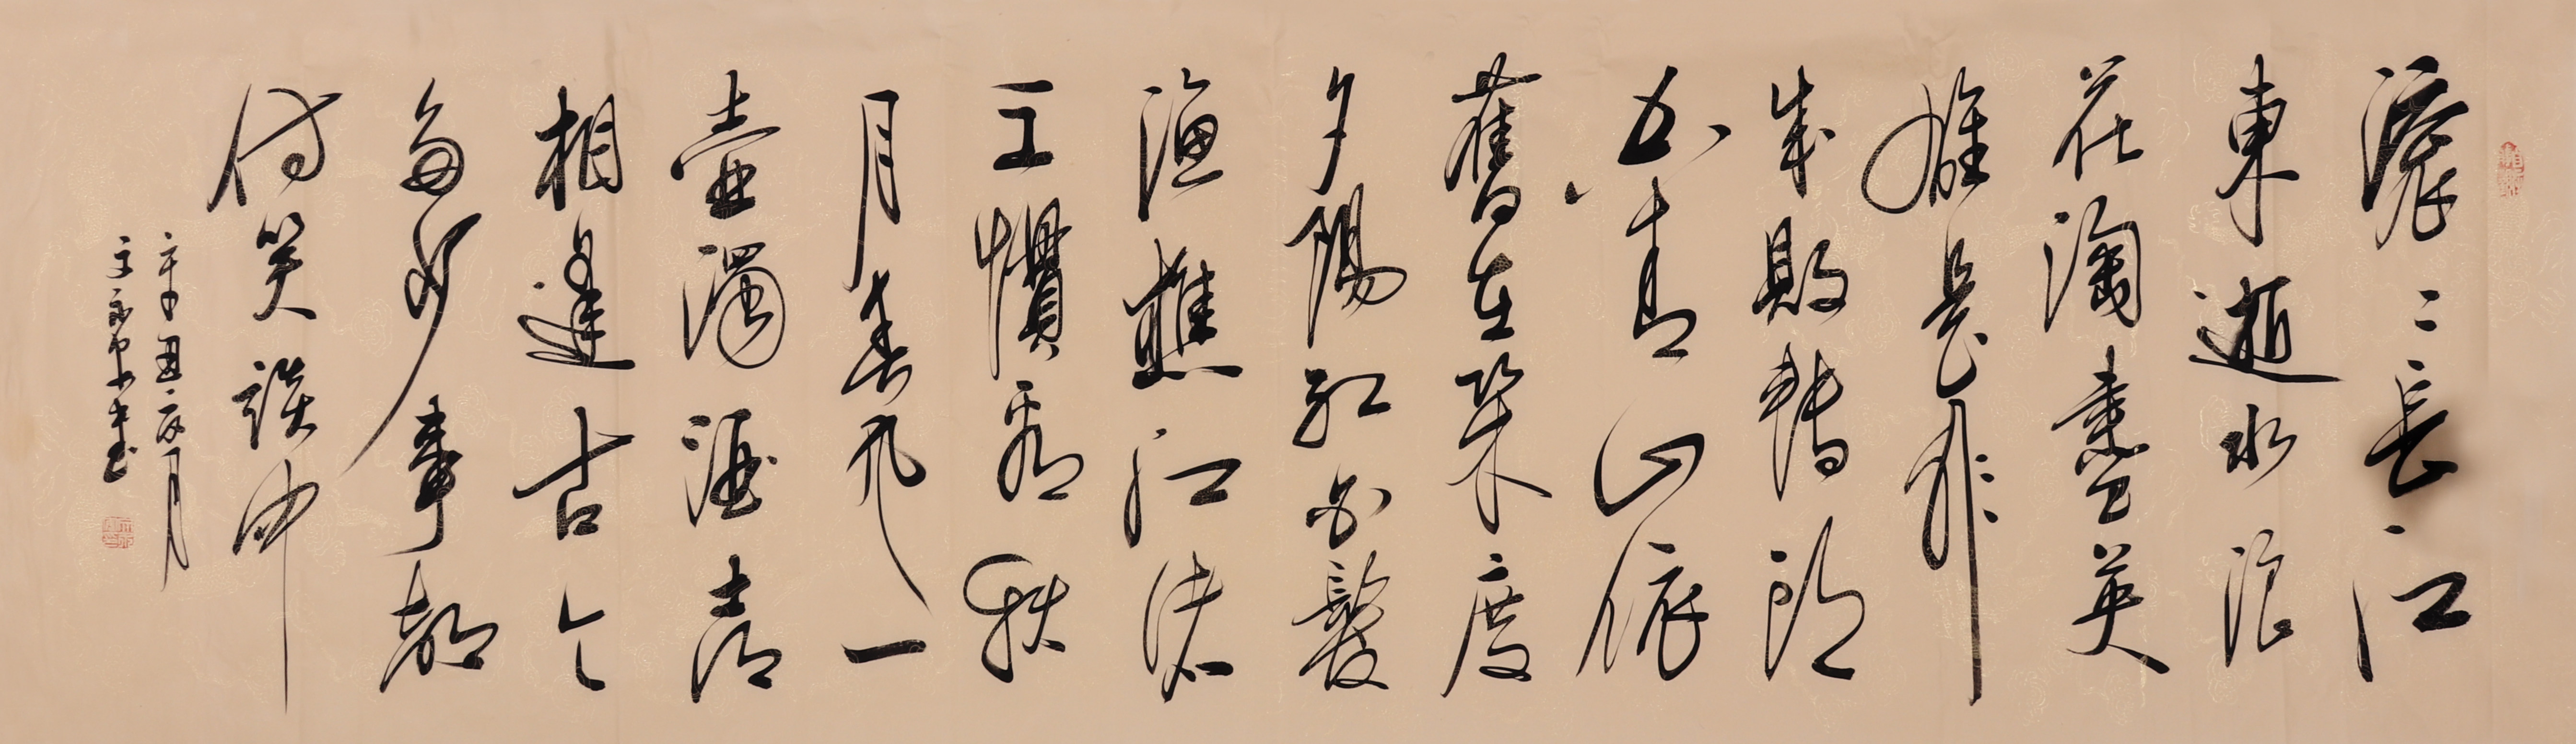 滾〻長江
東逝水浪
花淘盡英
雄是非
成敗轉頭
空青山依
舊在幾度
夕陽紅白髮
漁樵江渚
上慣看秋
月春風一
壺濁酒喜
相逢古今
多少事都
付笑談中
辛丑月
書